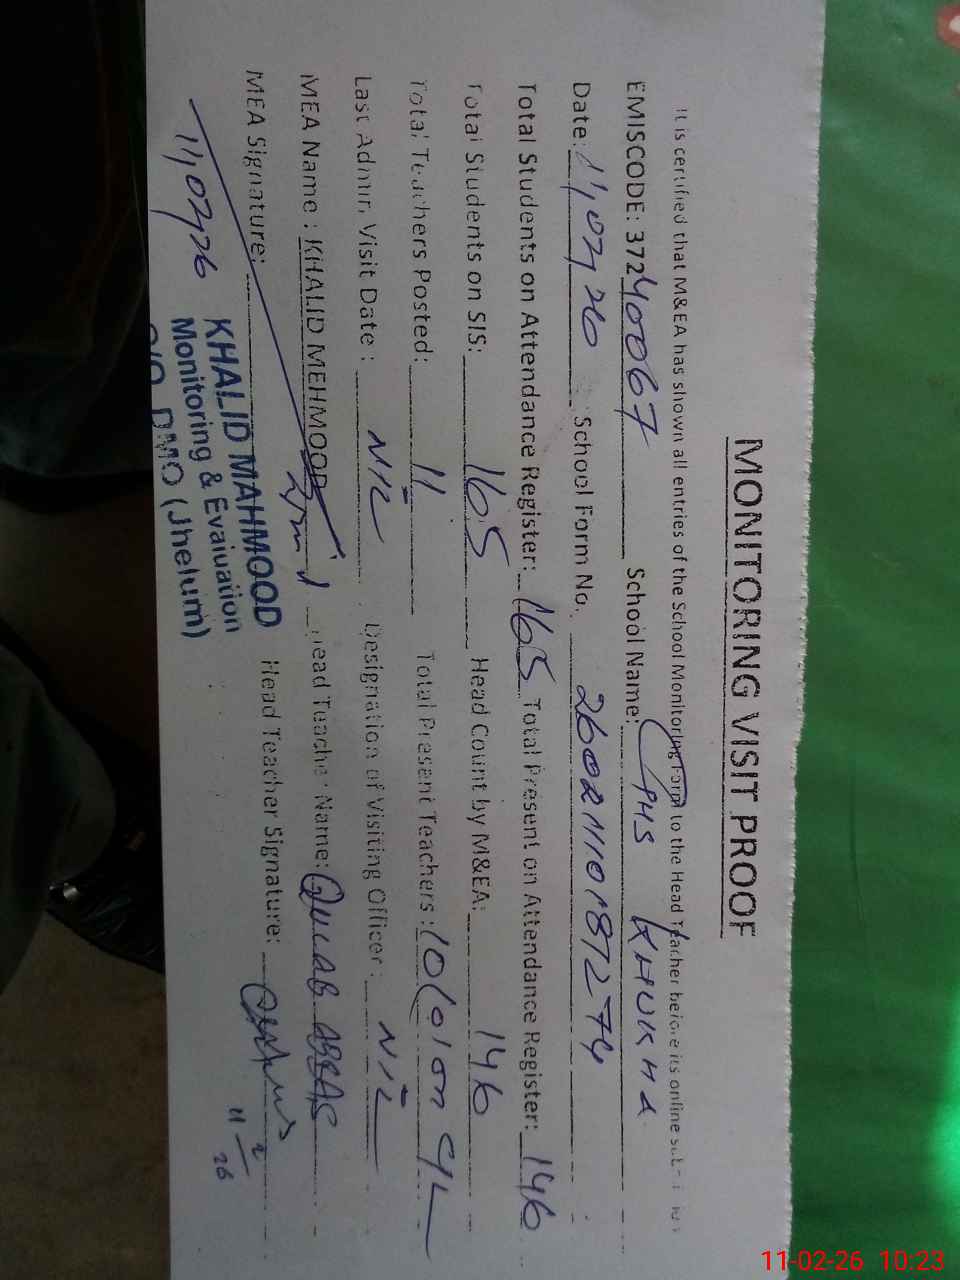 MONITORING VISIT PROOF
It is certified that M&EA has shown all entries of the School Monitoring Form to the Head Teacher before its online
EMISCODE: 37240067 School Name: GPHS KHUKHA
Date: 11,02,26 School Form No. 26021110187274
Total Students on Attendance Register: 165 Total Present on Attendance Register: 146
Total Students on SIS: 165 Head Count by M&EA: 146
Total Teachers Posted: 11 Total Present Teachers: 10(01 on CL
Last Admin Visit Date: NIL Designation of Visiting Officer: NIL
MEA Name : KHALID MEHMOOD Head Teacher Name: QULAB ABBAS
MEA Signature: Head Teacher Signature:
11,02,26
KHALID MAHMOOD
Monitoring & Evaluation
O/O DMO (Jhelum)
11-02-26 10:23